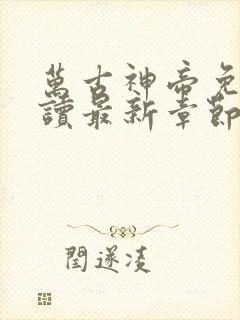 萬古神帝免
讀最新章節
閆遂凌